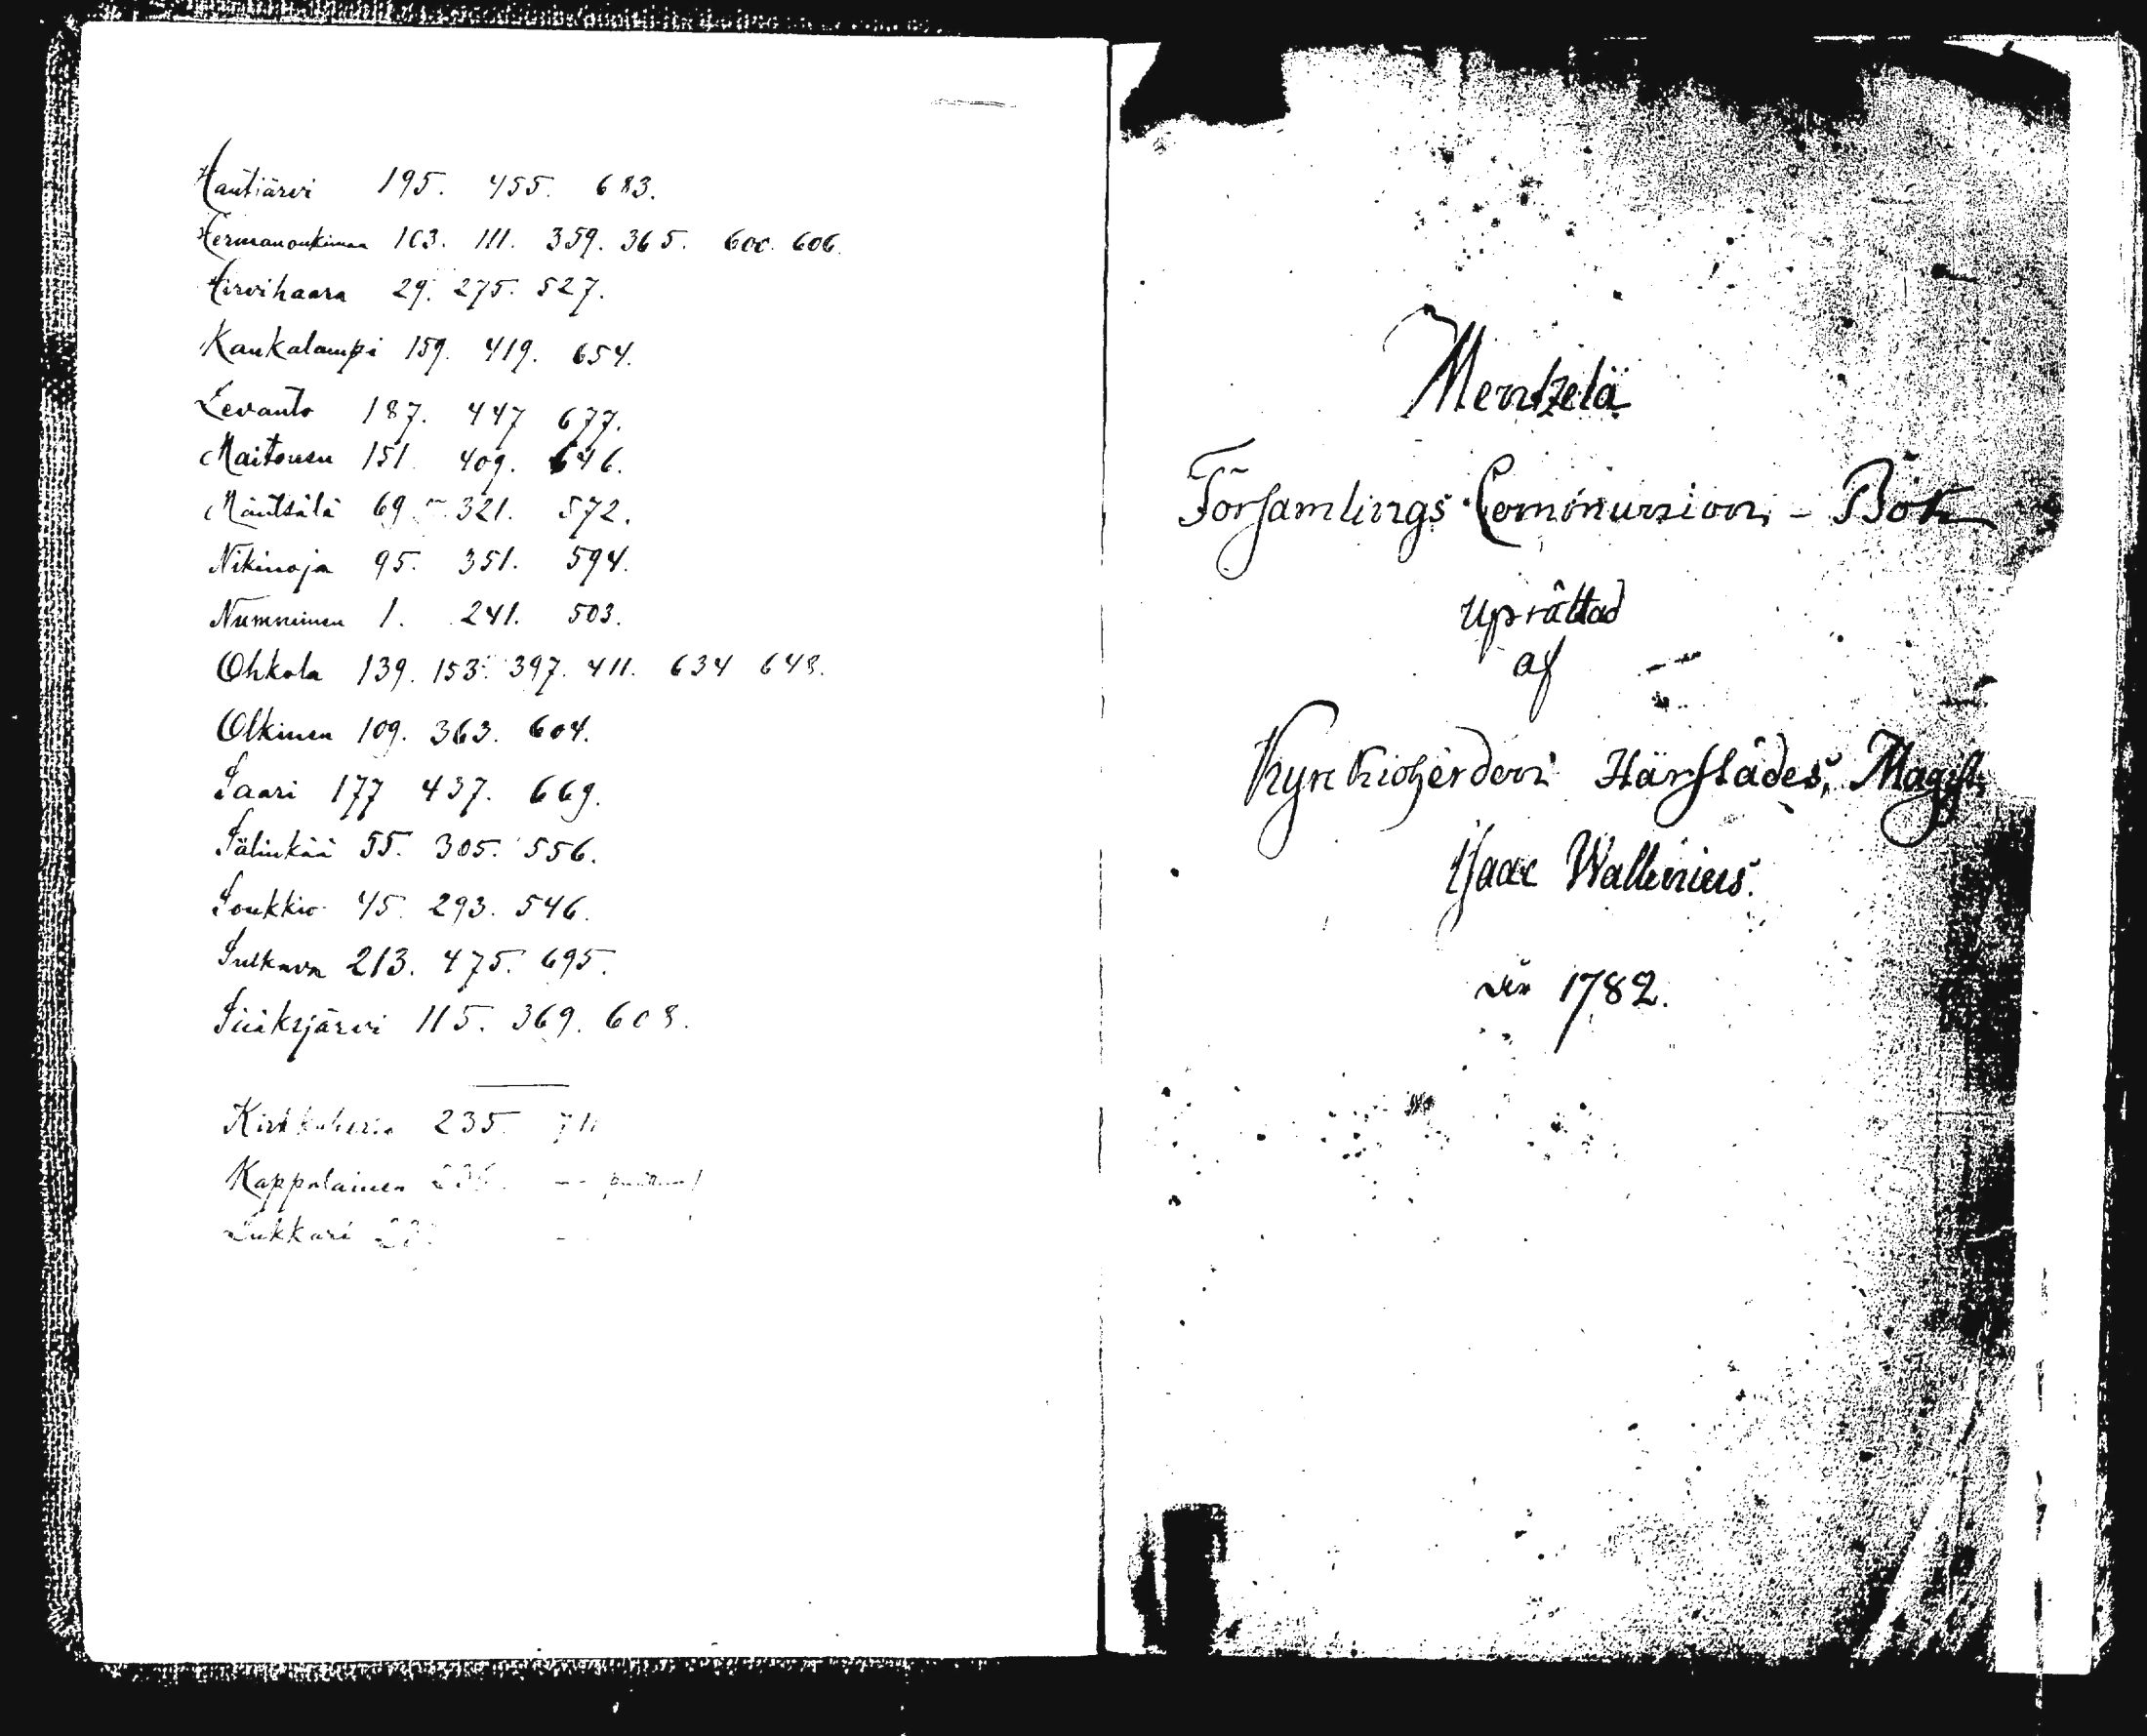 Hautjärvi 195. 455. 683.
Hermanonkimaa 103. 111. 359. 365. 600. 606.
Hirvihaara 29. 275. 527.
Kaukalampi 159. 419. 654.
Levanto 187. 447 677.
Maitonen 151. 409. 646.
Mäntsälä 69. 321. 572.
Nikinoja 95. 351. 594.
Numminen 1. 241. 503.
Ohkola 139. 153. 397. 411. 634 648.
Olkinen 109. 363. 604.
Saari 177 437. 669.
Sälinkää 55. 305. 556.
Soukkio 45. 293. 546.
Sulkava 213. 475. 695.
Sääksjärvi 115. 369. 608.
Kirkkoherra 235. 711
Kappalainen
Lukkari
Mentzelä
Församlings Communion - Bok
Uprättad
af
Kyrkioherden Härstädes, Magist.
Isaac Wallenius.
1782.